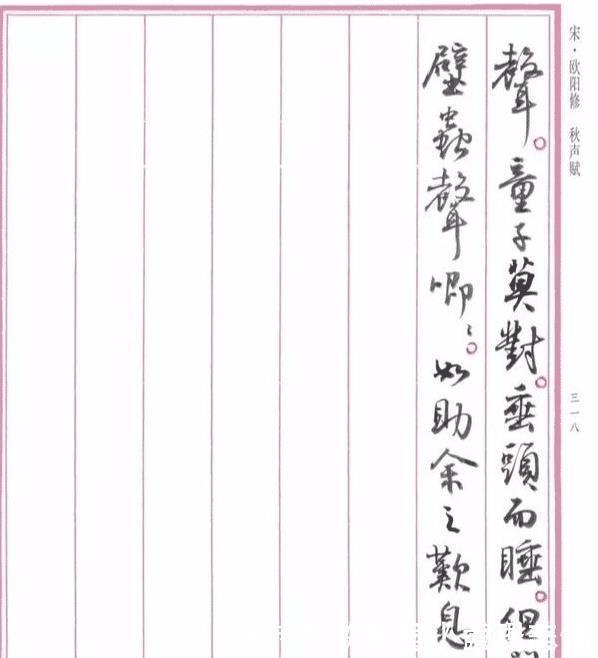 宋·欧阳修　秋声赋
三一八
聲。童子莫對。垂頭而睡。但
壁蟲聲唧〻。如助余之歎息